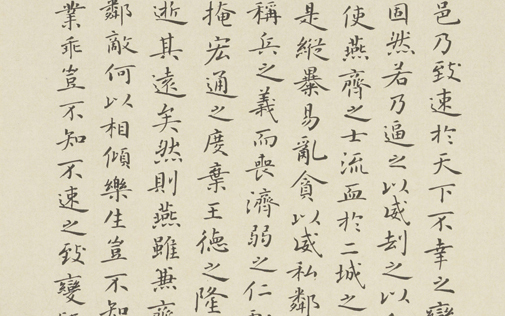 邑乃致速於天下不幸之變
固然若乃逼之以威刦之以
使燕齊之士流血於二城之
是縱暴易亂貪以威私鄰
稱兵之義而喪濟弱之仁
掩宏通之度棄王德之隆
逝其遠矣然則燕雖兼齊
鄰敵何以相傾樂生豈不知
業乖豈不知不速之致變